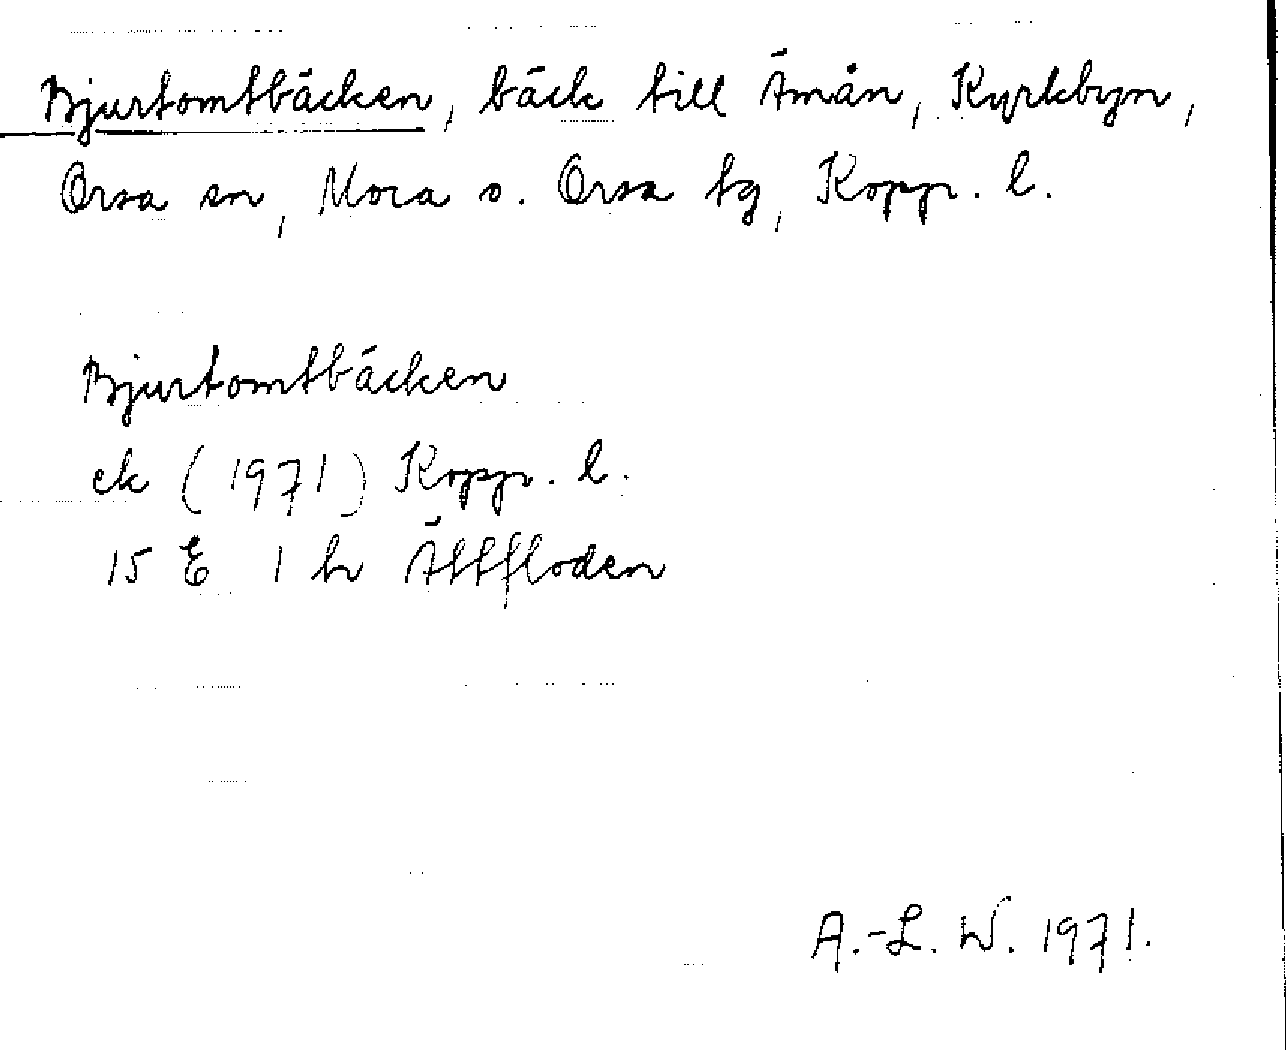 Bjurtomtbäcken, bäck till Ämån, Kyrkbyn,
Orsa sn, Mora o. Orsa tg, Kopp. l.
Bjurtomtbäcken
ek (1971) Kopp. l.
15 E 1 h Ältfloden
A.-L. W. 1971.